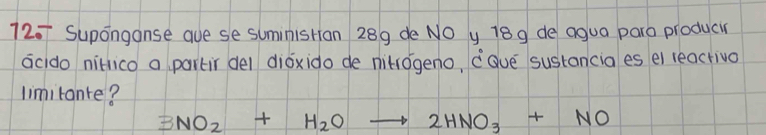 12.- Supónganse que se suministran 28g de NO y 18g de agua para producir
ácido nítrico a partir del dióxido de nitrógeno, ¿Qué sustancia es el reactivo
limitante?
3NO₂ + H₂O → 2HNO₃ + NO